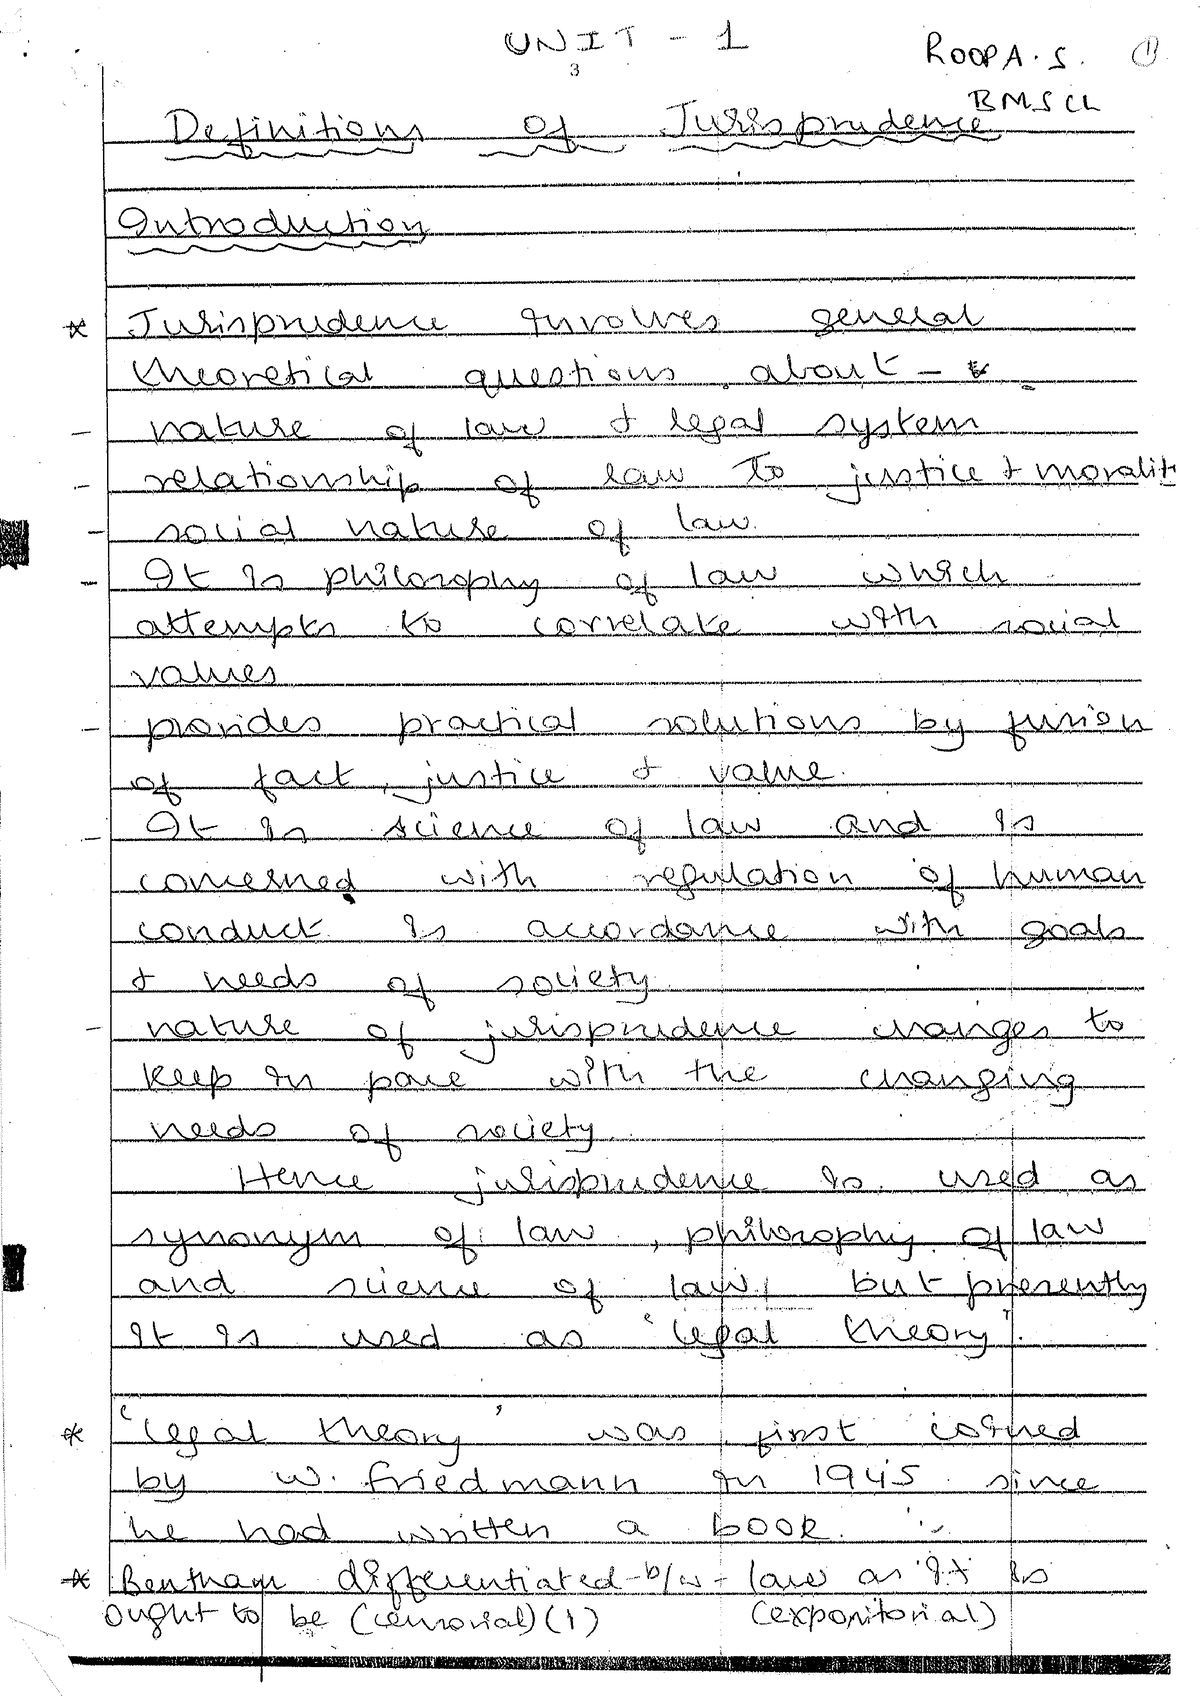 UNIT - 1
3
ROOPA.S. 1
BMSCL
Definitions of Jurisprudence
Introduction
* Jurisprudence involves general
theoretical questions about -
- nature of law & legal system
- relationship of law to justice & moralit
- social nature of law.
- It is philosophy of law which
attempts to correlate with social
values
- provides practical solutions by fusion
of fact, justice & value.
- It is science of law and is
concerned with regulation of human
conduct is accordance with goals
& needs of society
- nature of jurisprudence changes to
keep in pace with the changing
needs of society.
Hence jurisprudence is used as
synonym of law, philosophy of law
and science of law, but presently
it is used as 'legal theory'.
* 'legal theory' was first coined
by W. Friedmann in 1945 since
he had written a book.
* Bentham differentiated b/w - law as it is
ought to be (censorial) (1) (expositorial)